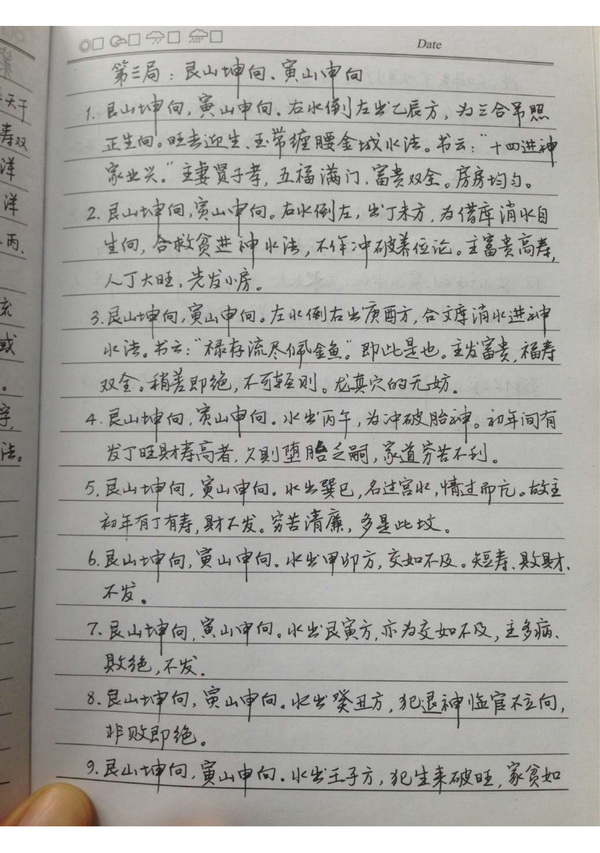 Date
第三局：艮山坤向、寅山申向
1. 艮山坤向，寅山申向。右水倒左出乙辰方，为三合吊照
正生向。旺去迎生、玉带缠腰金城水法。书云："十四进神
家业兴。"主妻贤子孝，五福满门，富贵双全。房房均匀。
2. 艮山坤向，寅山申向。右水倒左，出丁未方，为借库消水自
生向，合救贫进神水法，不作冲破养位论。主富贵高寿，
人丁大旺，先发小房。
3. 艮山坤向，寅山申向。左水倒右出庚酉方，合文库消水进神
水法。书云："禄存流尽佩金鱼。"即此是也。主发富贵，福寿
双全。稍差即绝，不可轻则。龙真穴的无妨.
4. 艮山坤向，寅山申向。水出丙午，为冲破胎神。初年间有
发丁旺财寿高者，久则堕胎乏嗣，家道穷苦不利。
5. 艮山坤向，寅山申向。水出巽巳，名过宫水，情过而亢。故主
初年有丁有寿，财不发。穷苦清廉，多是此坟。
6. 艮山坤向，寅山申向. 水出甲卯方，交如不及。短寿、败财、
不发。
7. 艮山坤向，寅山申向。水出艮寅方，亦为交如不及，主多病、
败绝，不发.
8. 艮山坤向，寅山申向。水出癸丑方，犯退神临官不立向，
非败即绝。
9. 艮山坤向，寅山申向. 水出壬子方，犯生来破旺，家贫如
千天干
寿双
洋
洋
丙、
或
字，
法。